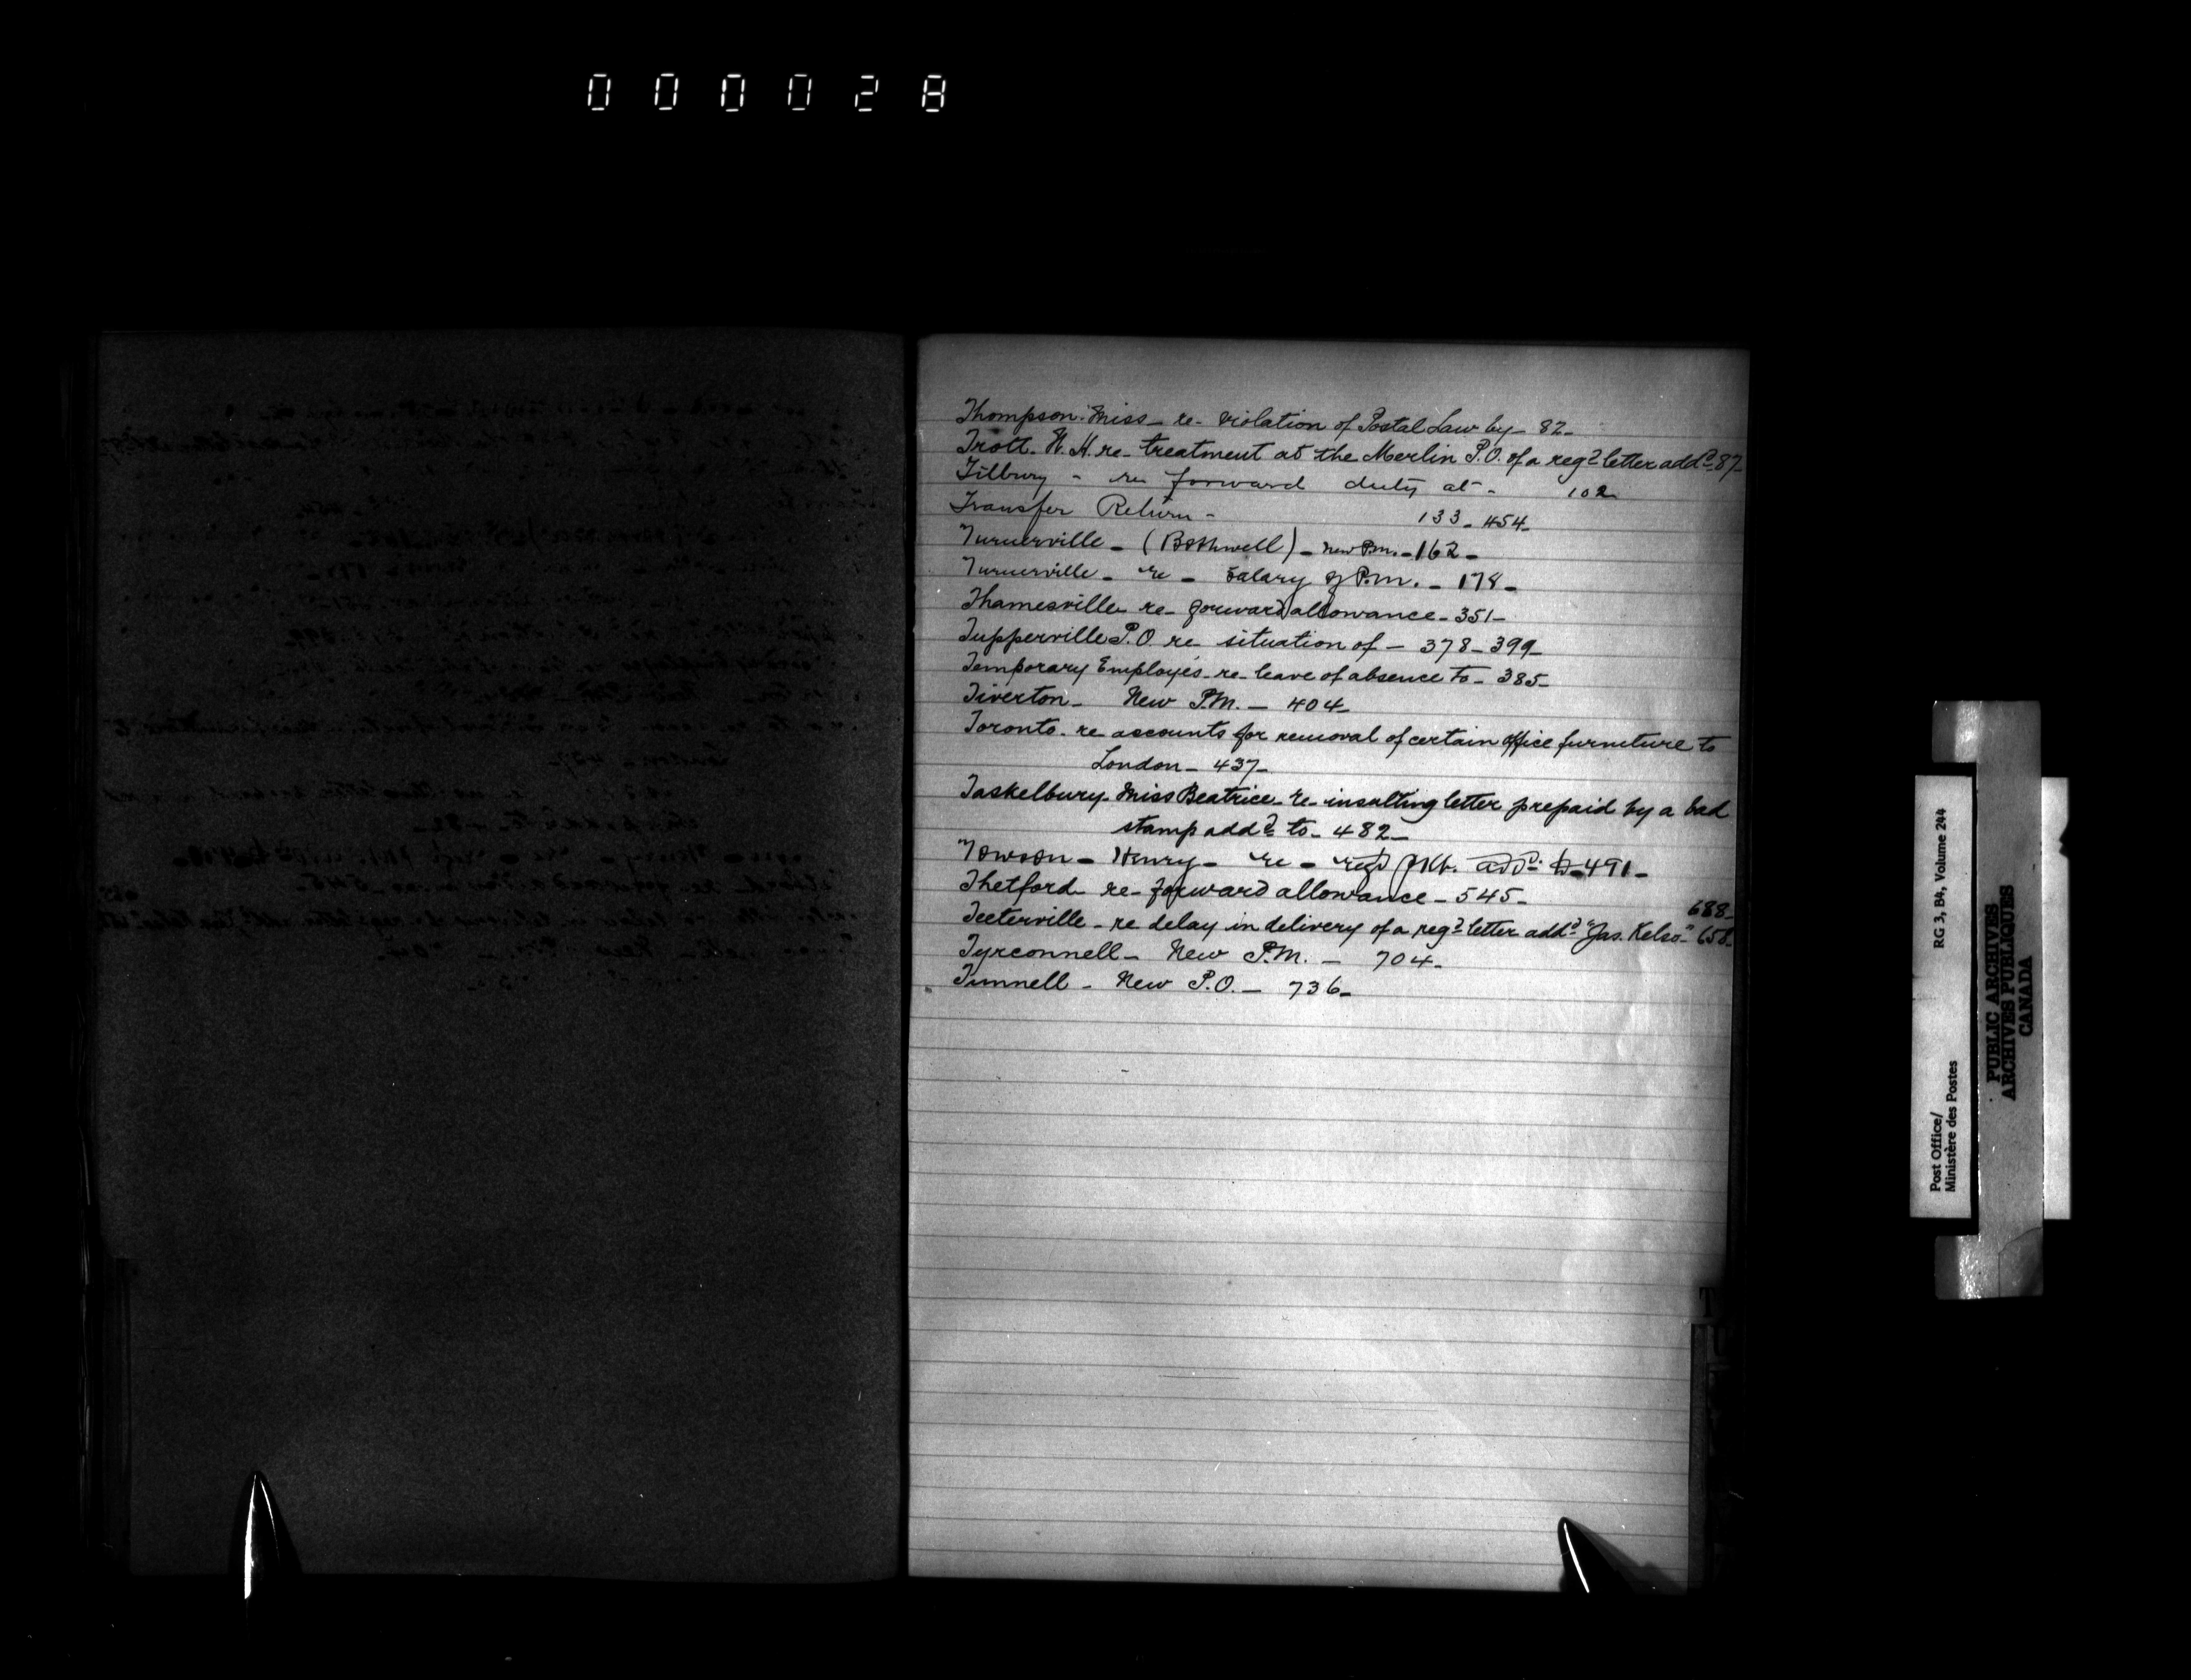 000028
Thompson Miss - re - violation of Postal Law by - 82 -
Trott. W. H. re - treatment at the Merlin P.O. of a regd letter addd - 87 -
Tilbury - re forward duty at - 102
Transfer Return - 133 - 454 -
Turnerville - (Bothwell) - New P.M. - 162 -
Turnerville - re - Salary of P.M. - 178 -
Thamesville re - forward allowance - 351 -
Tupperville P.O. re - situation of - 378 - 399 -
Temporary Employés - re - leave of absence to - 385 -
Tiverton - New P.M. - 404 -
Toronto - re accounts for removal of certain office furniture to
London - 437 -
Taskelbury - Miss Beatrice - re - insulting letter prepaid by a bad
stamp addd to - 482 -
Towson - Henry - re - regd pkt. addd to - 491 -
Thetford re - forward allowance - 545 -
688 -
Teeterville - re delay in delivery of a regd letter addd "Jas. Kelso" - 658 -
Tyrconnell - New P.M. - 704 -
Tunnell - New P.O. - 736 -
T
U
Post Office/
Ministère des Postes
RG 3, B4, Volume 244
PUBLIC ARCHIVES
ARCHIVES PUBLIQUES
CANADA